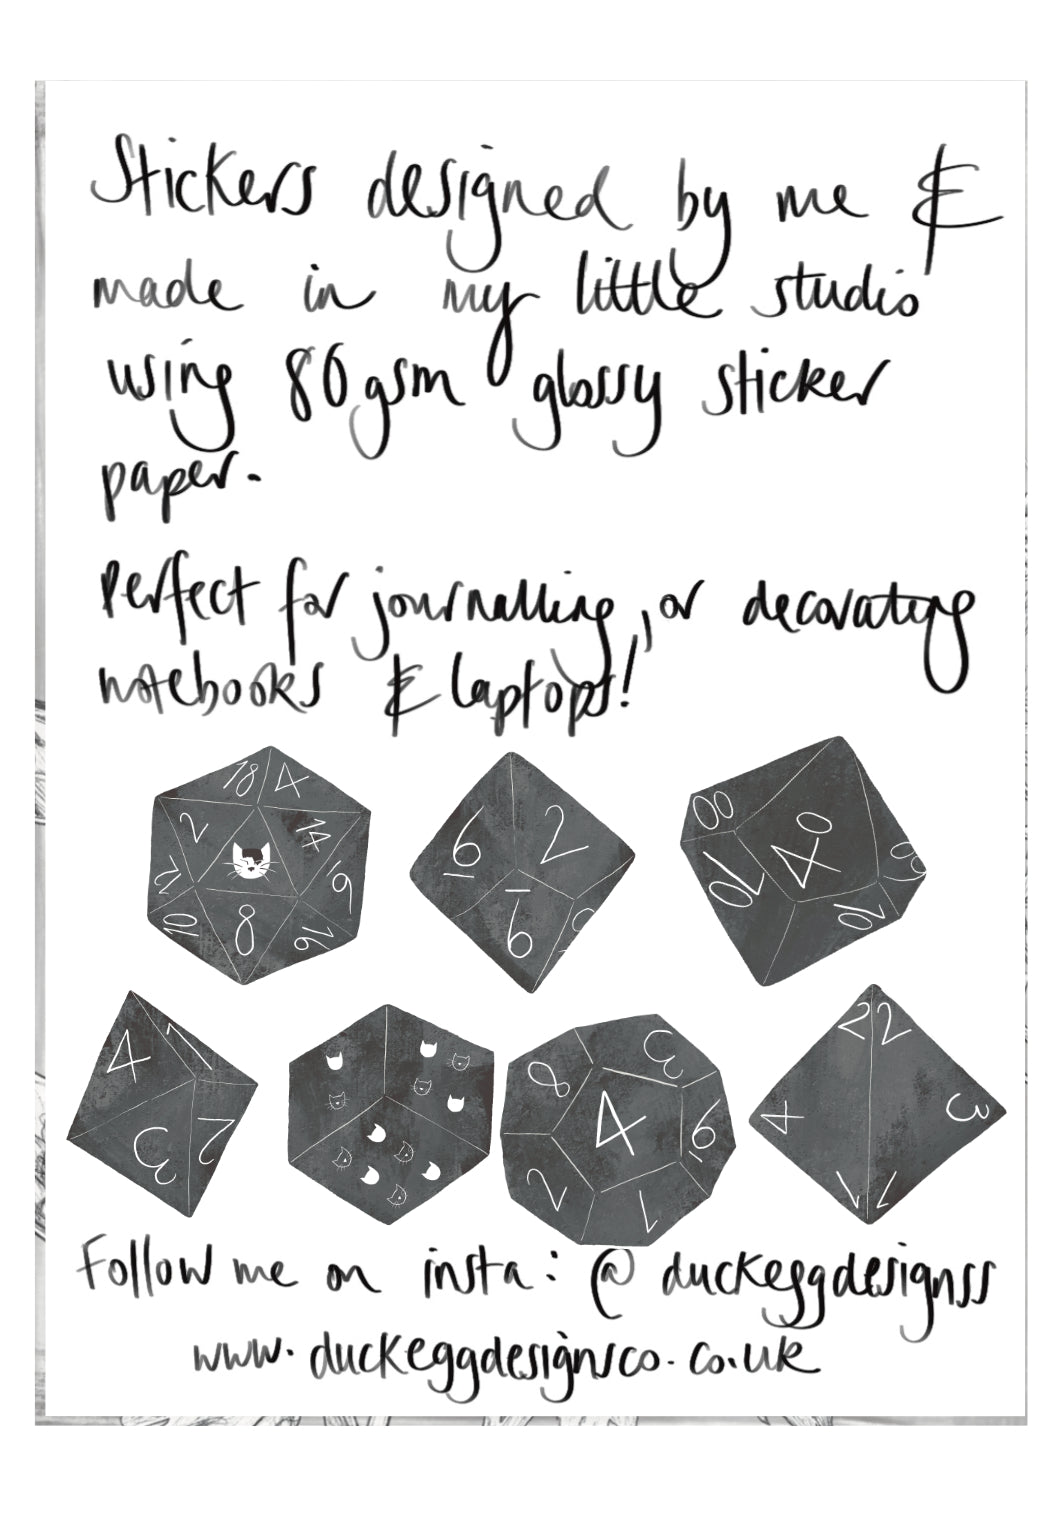 Stickers designed by me &
made in my little studio
using 80gsm glossy sticker
paper.
Perfect for journalling, or decorating
notebooks & laptops!
18 4
2 14
12 9
10 8 16
6 2
9
00 40 00
10 10
4 1
3 2
8 3
4 9
2 1
2 2
4 3
1 1
Follow me on insta: @duckeggdesignss
www.duckeggdesignsco.co.uk